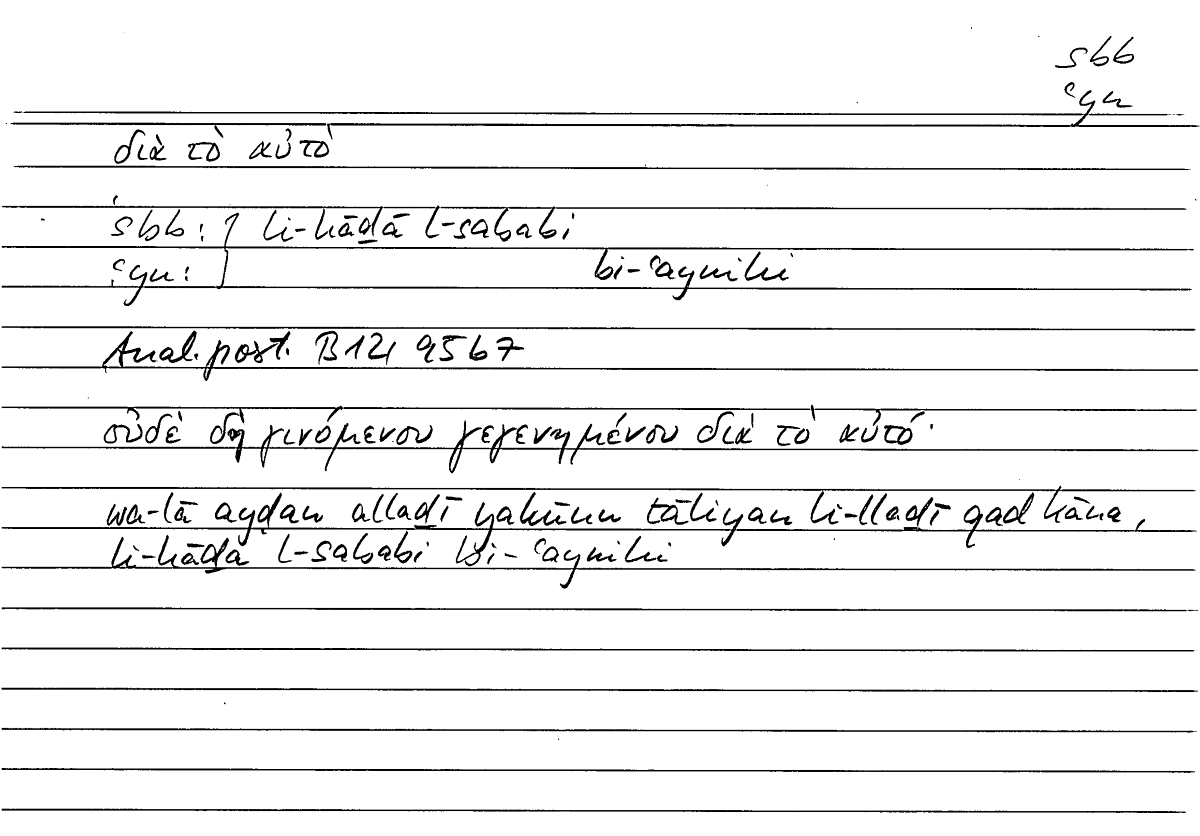 sbb
ʿyn
διὰ τὸ αὐτό
sbb: } li-hāḏā l-sababi
ʿyn: } bi-ʿaynihi
Anal. post. B12, 95b7
οὐδὲ δὴ γινόμενον γεγενημένου διὰ τὸ αὐτό·
wa-lā ayḍan allaḏī yakūnu tāliyan li-llaḏī qad kāna,
li-hāḏā l-sababi bi-ʿaynihi